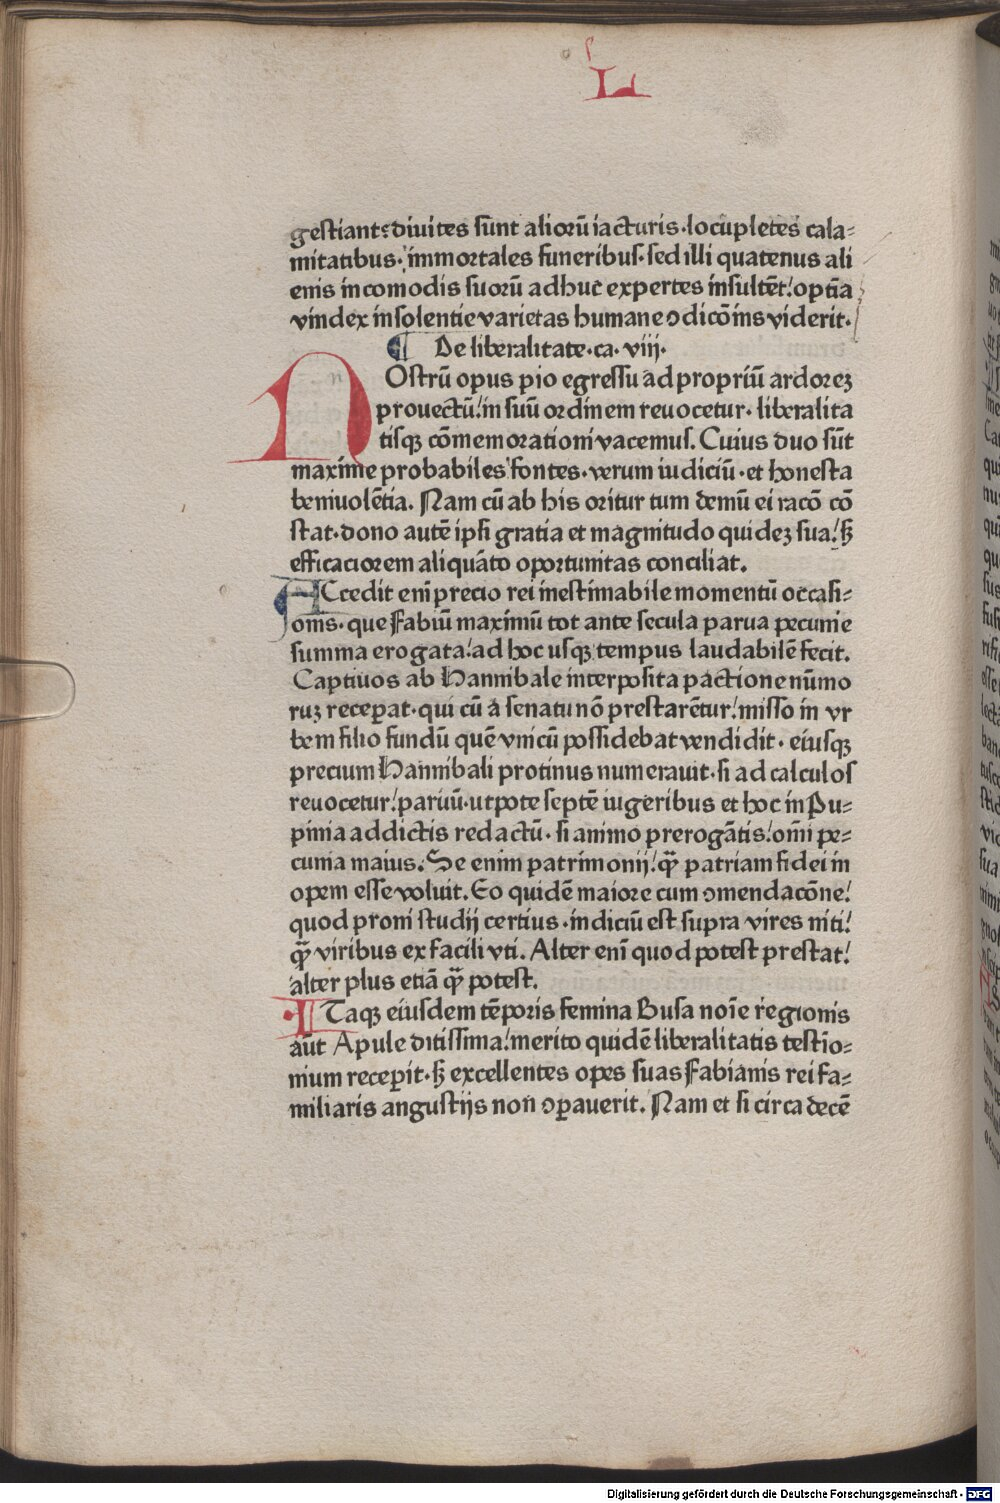 L
gestiant: diuites sunt aliorū iacturis· locupletes cala-
mitatibus· immortales funeribus· sed illi quatenus ali
enis incomodis suorū adhuc expertes insultēt! optīa
vindex insolentie varietas humane ↄdicōnis viderit·
¶ De liberalitate· ca· viij·
NOstrū opus pio egressu ad propriū ardoreꝫ
prouectū! in suū ordinem reuocetur· liberalita
tisqꝫ cōmemorationi vacemus. Cuius duo sūt
maxime probabiles fontes· verum iudiciū· et honesta
beniuolētia. Nam cū ab his oritur tum demū ei racō cō
stat· dono autē ipsi gratia et magnitudo quideꝫ sua! sꝫ
efficaciorem aliquāto oportunitas conciliat.
ACcedit enī precio rei inestimabile momentū occasi-
onis· que Fabiū maximū tot ante secula parua pecunie
summa erogata! ad hoc usqꝫ tempus laudabilē fecit.
Captiuos ab Hannibale interposita pactione nūmo
ruꝫ recepat· qui cū a senatu nō prestarētur! misso in vr
bem filio fundū quē vnicū possidebat vendidit· eiusqꝫ
precium Hannibali protinus numerauit· si ad calculos
reuocetur! paruū· utpote septē iugeribus et hoc in Pu-
pinia addictis redactū· si animo prerogātis! omī pe-
cunia maius. Se enim patrimonij! qꝫ̄ patriam fidei in
opem esse voluit. Eo quidē maiore cum ↄmendacōne!
quod proni studij certius· indiciū est supra vires niti!
qꝫ̄ viribus ex facili vti. Alter enī quod potest prestat!
alter plus etiā qꝫ̄ potest.
ITaqꝫ eiusdem tēporis femina Busa noīe regionis
aūt Apule ditissima! merito quidē liberalitatis testīo-
nium recepit· sꝫ excellentes opes suas Fabianis rei fa-
miliaris angustijs non ↄpauerit. Nam et si circa decē
Digitalisierung gefördert durch die Deutsche Forschungsgemeinschaft - DFG